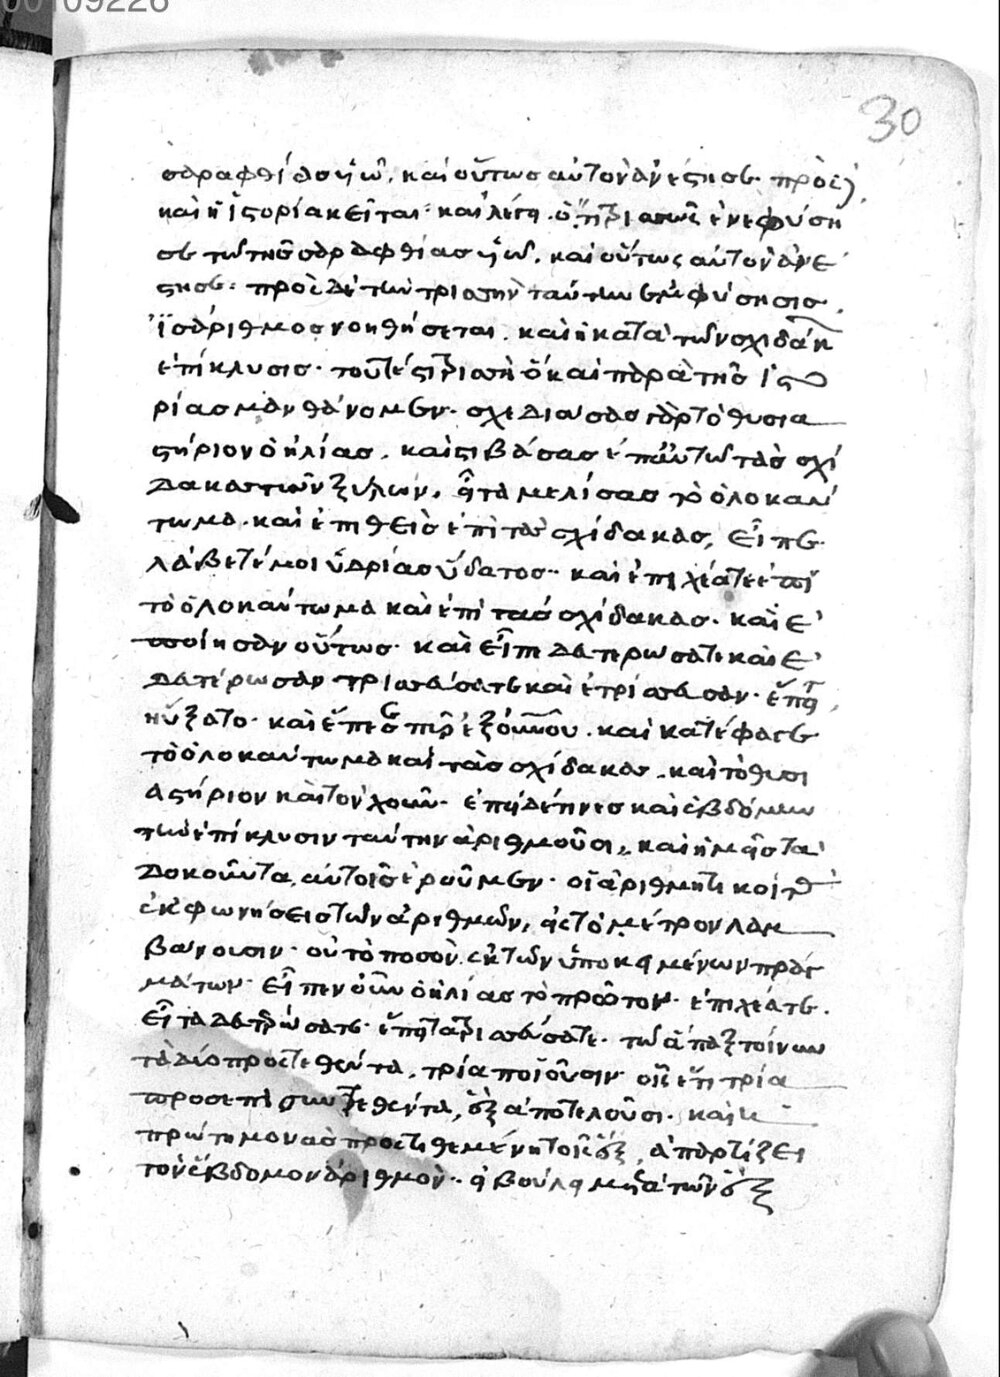 00109226
30
σαραφθίας υἱῶ. καὶ οὕτως αὐτὸν ἀνέστησε. πρὸς
καὶ ἡ ἱστορία κεῖται καὶ λέγει. ὅτι τρὶς ἐνεφύση
σε τῶ τῆς σαραφθίας υἱῶ. καὶ οὕτως αὐτὸν ἀνέ
στησε. πρὸς δὲ τῶ τριττὴν ταύτην ἐμφύσησις.
ἰσάριθμος νοηθήσεται. καὶ ἡ κατὰ τῶν σχιδάκων
ἐπίκλυσις. τουτέστι τρισσὴ ὃ καὶ παρὰ τῆς ἱστο
ρίας μανθάνομεν. σχεδιάσας γὰρ τὸ θυσια
στήριον ὁ ἠλίας. καὶ στιβάσας ἐπ' αὐτῶ τὰς σχί
δακας τῶν ξύλων. εἶτα μελίσας τὸ ὁλοκαύ
τωμα. καὶ ἐπιθεὶς ἐπὶ τὰς σχίδακας, εἶπε.
λάβετέ μοι ὑδρίας ὕδατος. καὶ ἐπιχέατε ἐπὶ
τὸ ὁλοκαύτωμα καὶ ἐπὶ τὰς σχίδακας. καὶ ἐ
ποίησαν οὕτως. καὶ εἶπε δευτερώσατε καὶ ἐ
δευτέρωσαν τρισσεύσατε καὶ ἐτρίσσευσαν. ἔπειτα
ηὔξατο. καὶ ἔπεσε πῦρ ἐξ οὐνοῦ. καὶ κατέφαγε
τὸ ὁλοκαύτωμα καὶ τὰς σχίδακας. καὶ τὸ θυσι
αστήριον καὶ τὸν χοῦν. ἐπεὶ δέ τινες καὶ ἑβδόμην
τὴν ἐπίκλυσιν ταύτην ἀριθμοῦσι, καὶ ἡμεῖς τὰ
δοκοῦντα αὐτοῖς ἐροῦμεν. οἱ ἀριθμητικοὶ
ἐκφωνήσεις τῶν ἀριθμῶν, εἰς τὸ μέτρον λαμ
βάνουσιν. οὐ τὸ ποσὸν ἐκ τῶν ὑποκειμένων πραγ
μάτων. εἶπεν οὖν ὁ ἠλίας τὸ πρῶτον. ἐπιχέατε.
εἶτα δευτερώσατε. ἔπειτα τρισσεύσατε. τῶ ἅπαξ τοίνυν
τὰ δύο προστεθέντα, τρία ποιοῦσιν. οἷς ἔτι τρία
προσεπισυντεθέντα, ἓξ ἀποτελοῦσι. καὶ ἡ
πρώτη μονὰς προστιθεμένη τοῖς ἓξ, ἀπαρτίζει
τὸν ἕβδομον ἀριθμὸν. εἰ βούλει μετὰ τῶν ἓξ